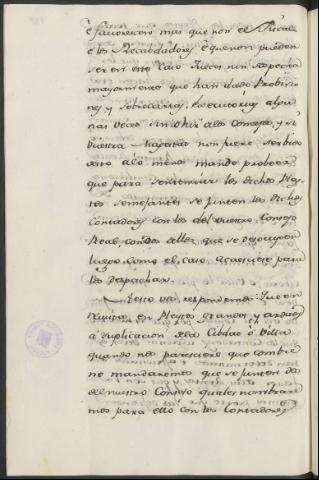 è favorescen mas que por el Fiscal
è los Recabdadores è que non pueden
ser en este caso Jueces sin sospecha
mayormente que han dado Probisio-
nes y sobrecartas, è executorias algu-
nas veces sin ohir á los Consejos, y si
Vuestra Magestad non fuere serbido
esto á lo menos mande probeer
que para sentenciar los dichos Pley-
tos semejantes se junten los dichos
Contadores con los del vuestro Consejo
Real, con dos dellos, que se disocupen
luego como el caso acaesciere para
los despachar.
A esto vos respondemos: Que en
Pleytos grandes y arduos
á suplicacion de la Cibdad ò Villa
quando nos paresciere que combie-
ne mandaremos que se junten dos
del nuestro Consejo quales nombrare-
mos para ello con los Contadores